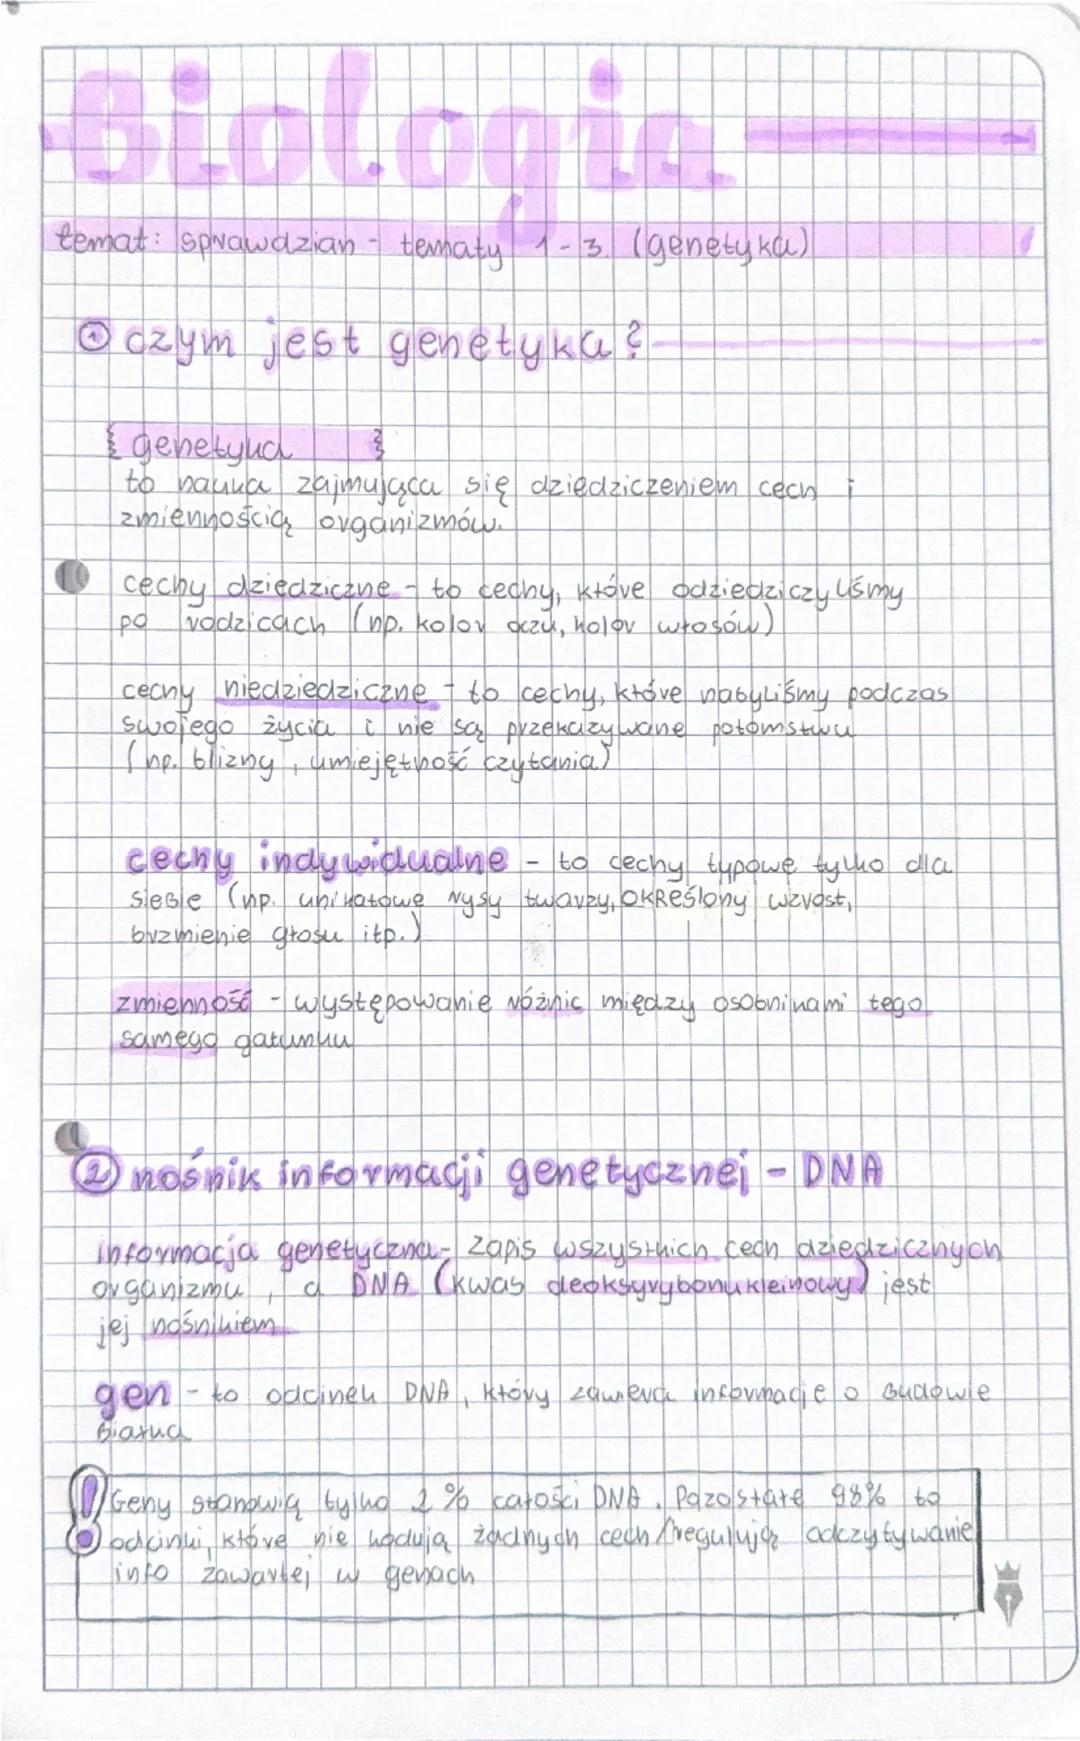 Biologia
temat: sprawdzian - tematy 1-3. (genetyka)
① czym jest genetyka?
{ genetyka }
to nauka zajmująca się dziedziczeniem cech i
zmiennością organizmów.
cechy dziedziczne - to cechy, które odziedziczyliśmy
po rodzicach (np. kolor oczu, kolor włosów)
cechy niedziedziczne - to cechy, które nabyliśmy podczas
swojego życia i nie są przekazywane potomstwu
(np. blizny, umiejętność czytania)
cechy indywidualne - to cechy typowe tylko dla
siebie (np. unikatowe rysy twarzy, określony wzrost,
brzmienie głosu itp.)
zmienność - występowanie różnic między osobnikami tego
samego gatunku
② nośnik informacji genetycznej - DNA
informacja genetyczna - zapis wszystkich cech dziedzicznych
organizmu, a DNA (kwas deoksyrybonukleinowy) jest
jej nośnikiem
gen - to odcinek DNA, który zawiera informacje o budowie
białka
! Geny stanowią tylko 2% całości DNA. Pozostałe 98% to
odcinki, które nie kodują żadnych cech/regulują odczytywanie
info zawartej w genach